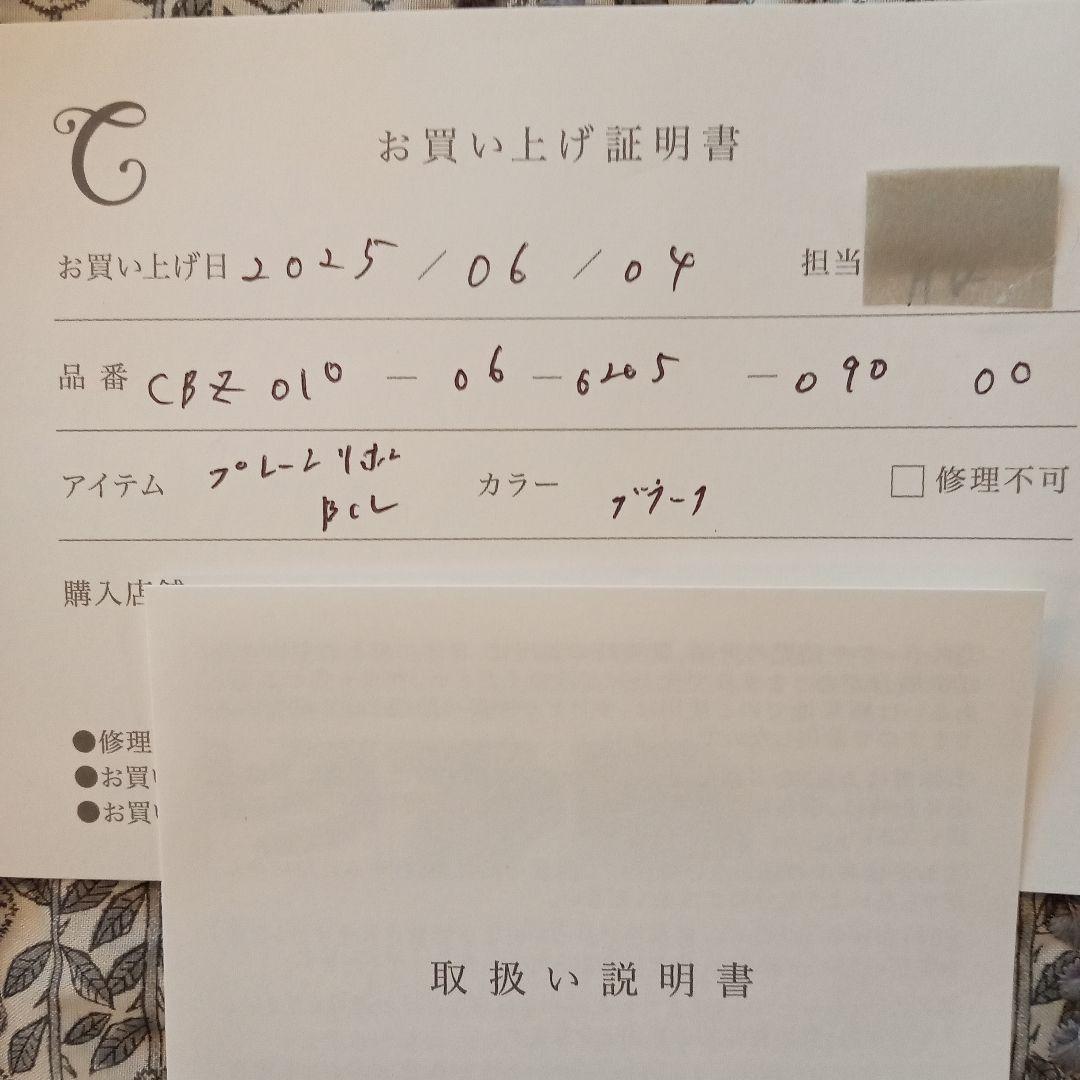 C
お買い上げ証明書
お買い上げ日 2025 / 06 / 04 担当
品番 CBZ 010 - 06 - 6205 - 090 00
アイテム プレートリボン カラー ブラック □修理不可
BCL
購入店舗
●修理
●お買い
●お買い
取扱い説明書